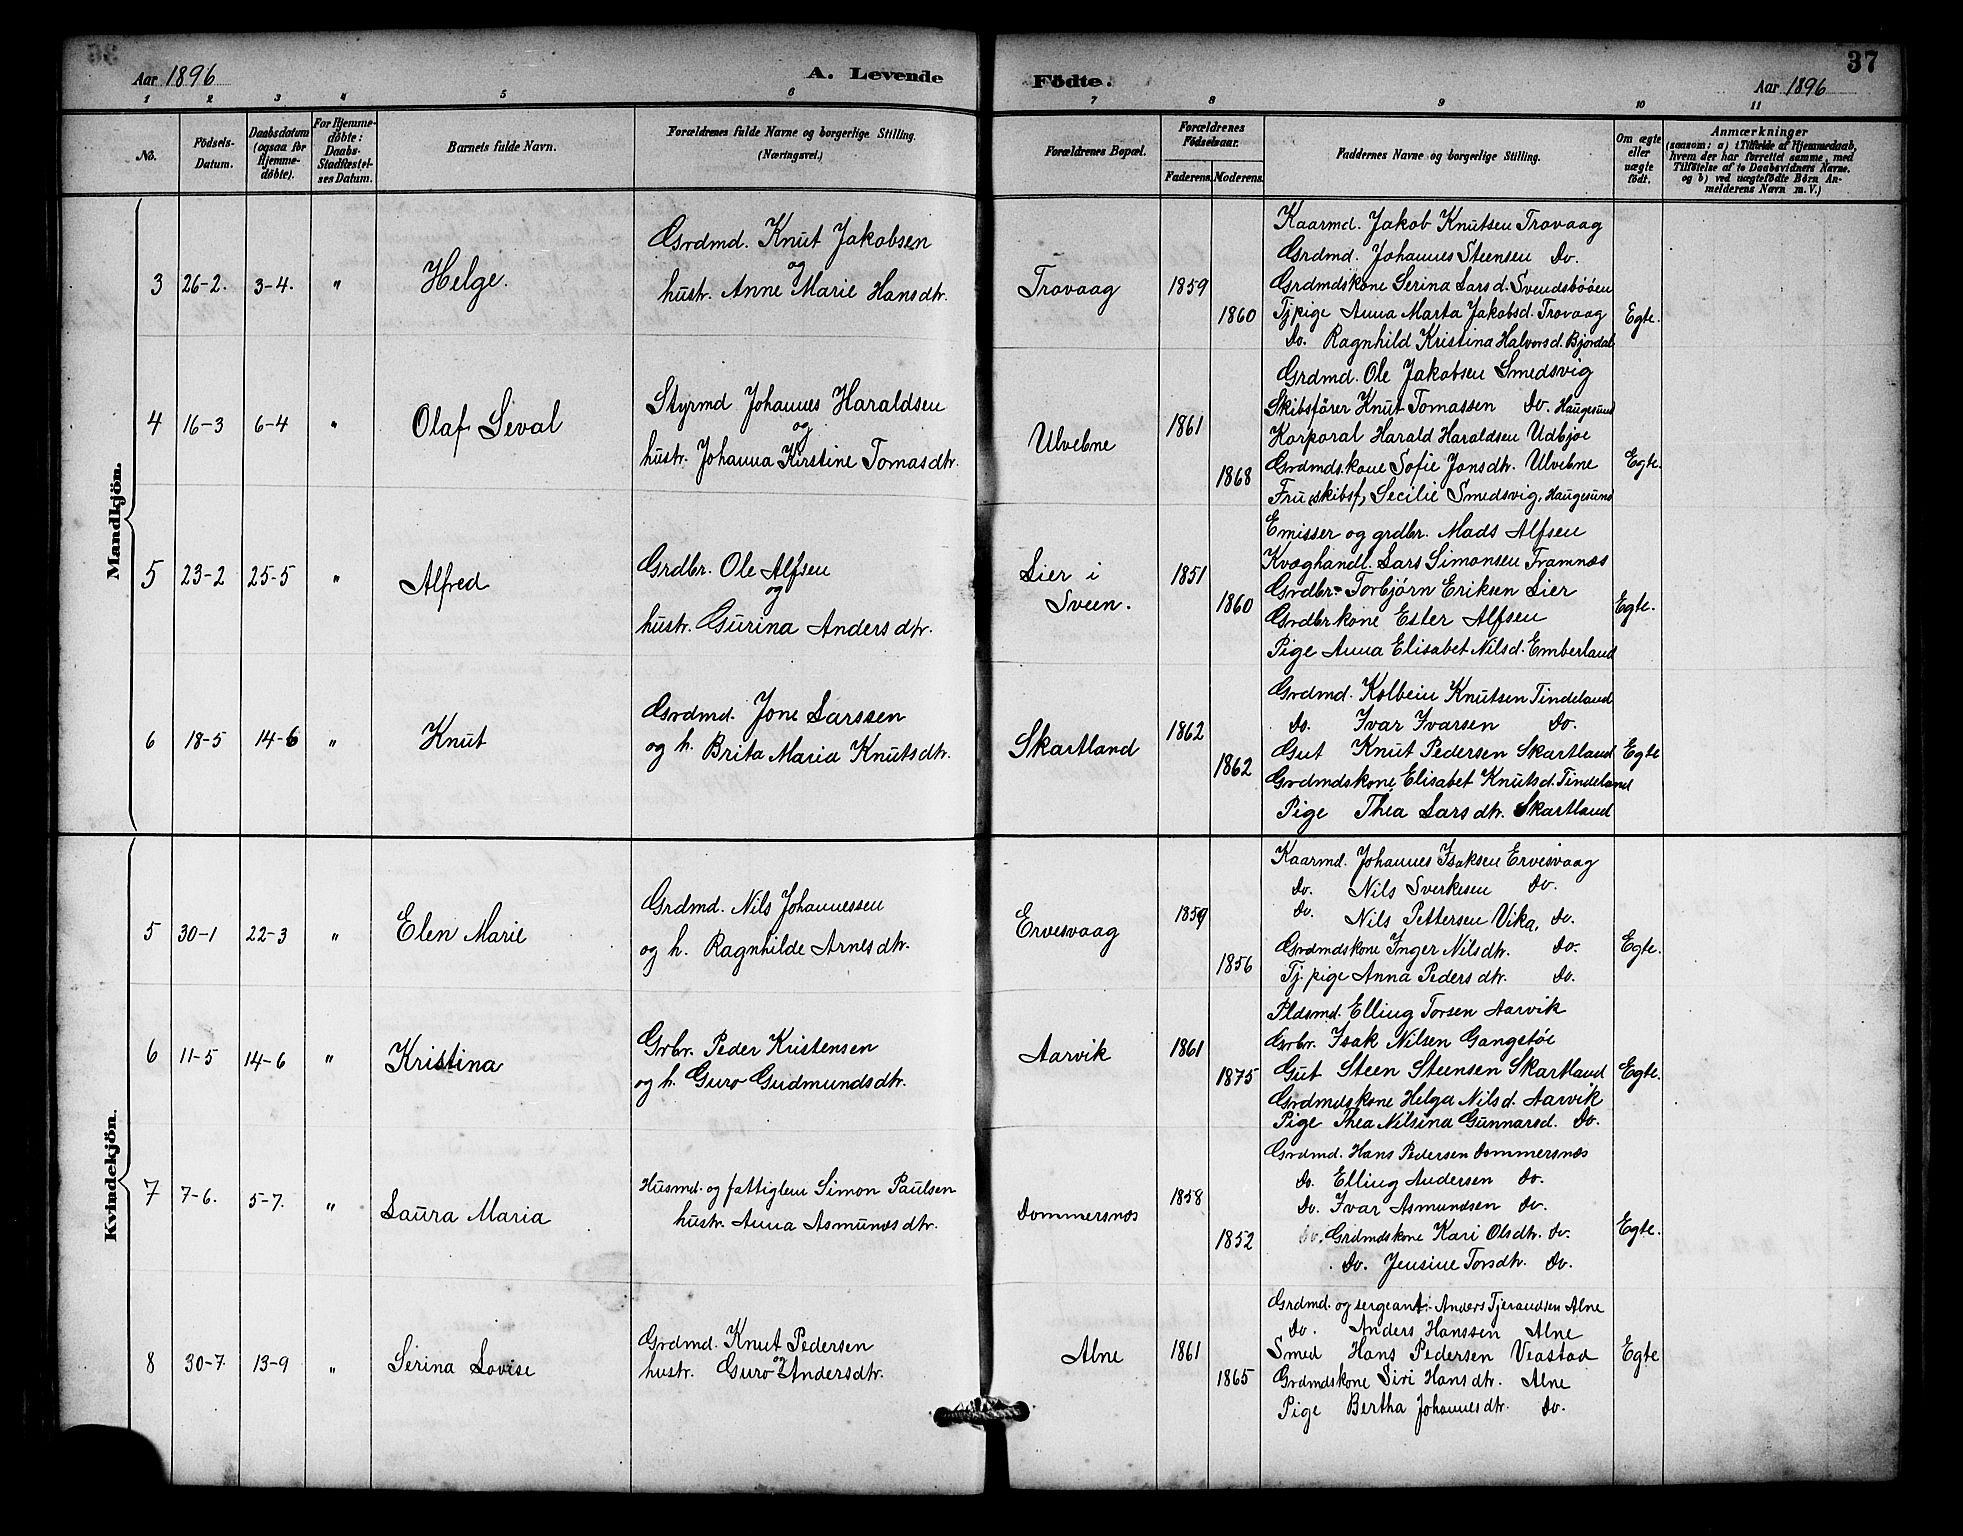 36
37
Aar 1896
A. Levende
Födte.
Aar 1896
1 2 3 4 5 6 7 8 9 10 11
No.
Födsels-Datum.
Daabsdatum (ogsaa for Hjemme-döbte).
For Hjemme-döbte: Daabs-Stadfæstel-ses Datum.
Barnets fulde Navn.
Forældrenes fulde Navne og borgerlige Stilling.
(Næringsvei.)
Forældrenes Bopæl.
Forældrenes Födselsaar.
Faderens. Moderens.
Faddernes Navne og borgerlige Stilling.
Om ægte eller uægte födt.
Anmærkninger
(saasom: a) i Tilfælde af Hjemmedaab,
hvem der har forrettet samme, med
Tilföielse af to Daabsvidners Navne.
og b) ved uægtefödte Börn An-
melderens Navn m. V.)
Mandkjön.
3 26-2. 3-4. " Helge.
Grdmd. Knut Jakobsen
og
hustr. Anne Marie Hansdtr.
Trovaag 1859
1860
Kaarmd. Jakob Knutsen Trovaag
Grdmd. Johannes Steensen Do.
Grdmdskone Serina Larsd. Svendsbøen
Tjpige Anna Marta Jakobsd. Trovaag
Do. Ragnhild Kristina Halvorsd. Bjordal
Egte.
4 16-3 6-4 " Olaf Seval
Styrmd Johannes Haraldsen
og
hustr. Johanna Kirstine Tomasdtr.
Ulvebne 1861
1868
Grdmd. Ole Jakobsen Smedsvig
Skibsfører Knut Tomassen Do. Haugesund
Korporal Harald Haraldsen Udbjoe
Grdmdskone Sofie Jonsdtr. Ulvebne
Fru (skibsf) Secilie Smedsvig, Haugesund
Egte.
5 23-2 25-5 " Alfred
Grdbr. Ole Alfsen
og
hustr. Gurina Andersdtr.
Lier i
Sveen.
1851
1860
Emisser og grdbr. Mads Alfsen
Kvæghandl. Lars Simonsen Framnæs
Grdbr. Torbjørn Eriksen Lier
Grdbrkone Ester Alfsen
Pige Anna Elisabet Nilsd. Emberland
Egte.
6 18-5 14-6 " Knut
Grdmd. Jone Larssen
og h. Brita Maria Knutsdtr.
Skartland 1862
1862
Grdmd. Kolbein Knutsen Tindeland
Do. Ivar Ivarsen Do.
Gut Knut Pedersen Skartland
Grdmdskone Elisabet Knutsd. Tindeland
Pige Thea Larsdtr. Skartland
Egte
Kvindekjön.
5 30-1 22-3 " Elen Marie
Grdmd. Nils Johannessen
og h. Ragnhilde Arnesdtr.
Ervesvaag 1859
1856
Kaarmd. Johannes Isaksen Ervesvaag
Do. Nils Sverkesen Do.
Do. Nils Pettersen Vika, Do.
Grdmdskone Inger Nilsdtr. Do.
Tj. pige Anna Pedersdtr. Do.
Egte.
6 11-5 14-6 " Kristina
Grbr. Peder Kristensen
og h. Guro Gudmundsdtr.
Aarvik 1861
1875
Pldsmd. Elling Torsen Aarvik
Grbr. Isak Nilsen Gangstøe
Gut Steen Steensen Skartland
Grdmdskone Helga Nilsd. Aarvik
Pige Thea Nilsina Gunnarsd. Do.
Egte.
7 7-6. 5-7. " Laura Maria
Husmd. og fattiglem Simon Paulsen
hustr. Anna Asmundsdtr.
Dommersnæs 1858
1852
Grdmd. Hans Pedersen Dommersnæs
Do. Elling Andersen Do.
Do. Ivar Asmundsen Do.
Do. Grdmdskone Kari Olsdtr. Do.
Do. Jensine Torsdtr. Do.
Egte.
8 30-7. 13-9 " Serina Lovise
Grdmd. Knut Pedersen
og
hustr. Guro Andersdtr.
Alne 1861
1865
Grdmd. og sergeant. Anders Tjerandsen Alne
Do. Anders Hanssen Alne
Smed Hans Pedersen Veastad
Grdmdskone Siri Hansdtr. Alne
Pige Bertha Johannesdtr. Do.
Egte